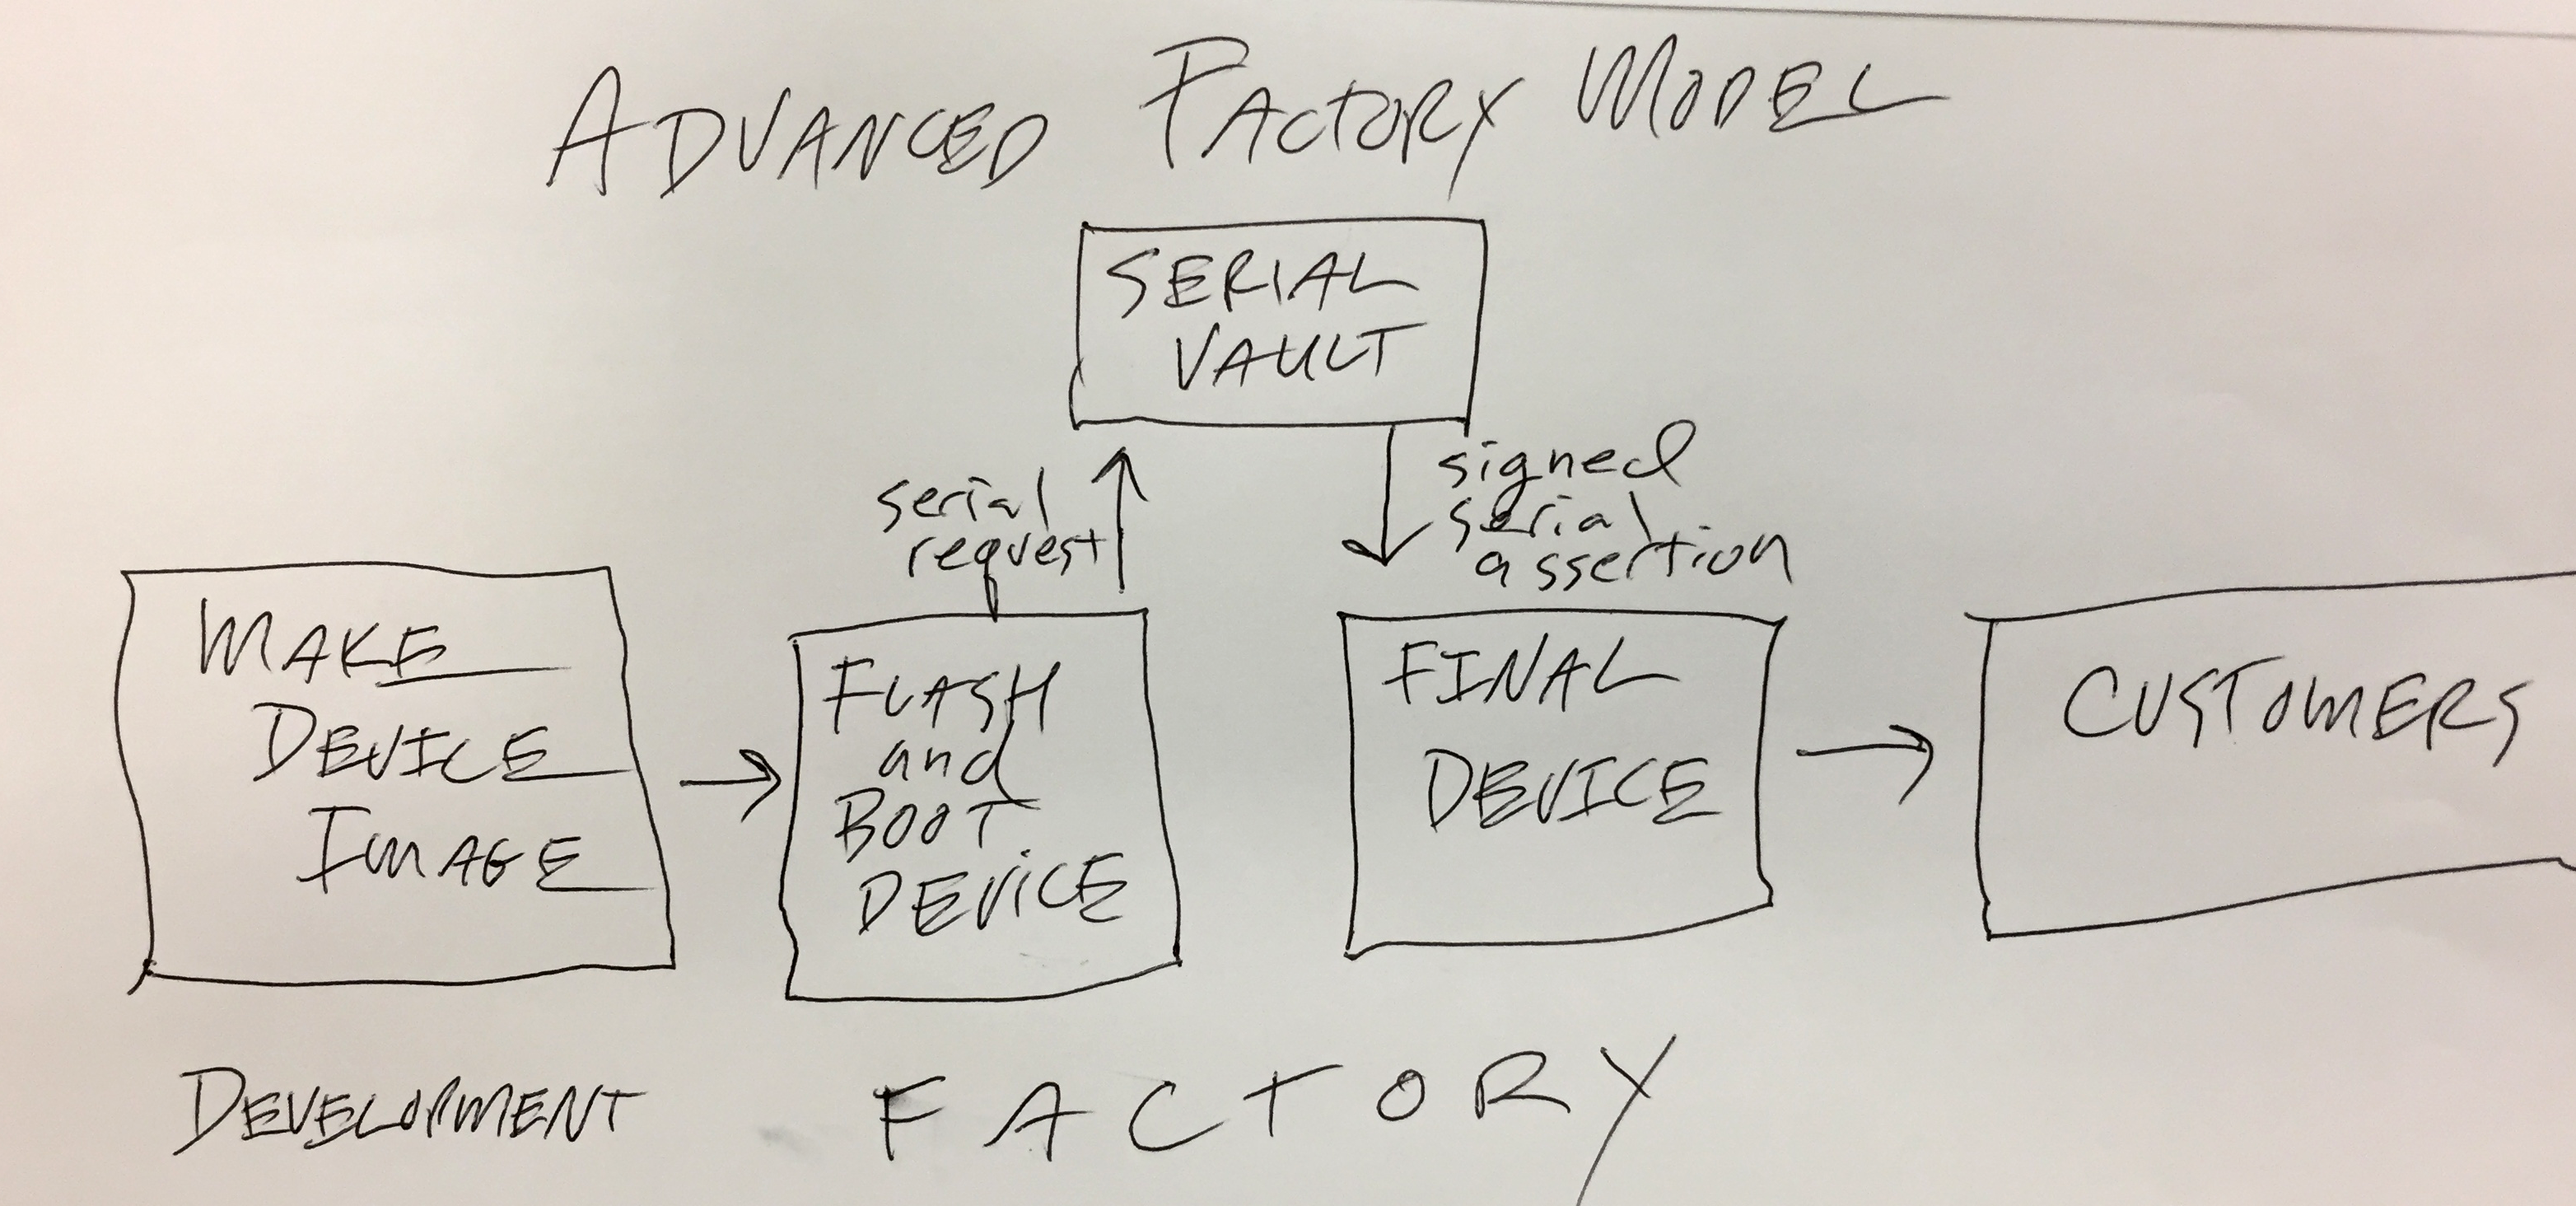 ADVANCED FACTORY MODEL
SERIAL
VAULT
serial
request
signed
serial
assertion
MAKE
DEVICE
IMAGE
FLASH
and
BOOT
DEVICE
FINAL
DEVICE
CUSTOMERS
DEVELOPMENT
FACTORY